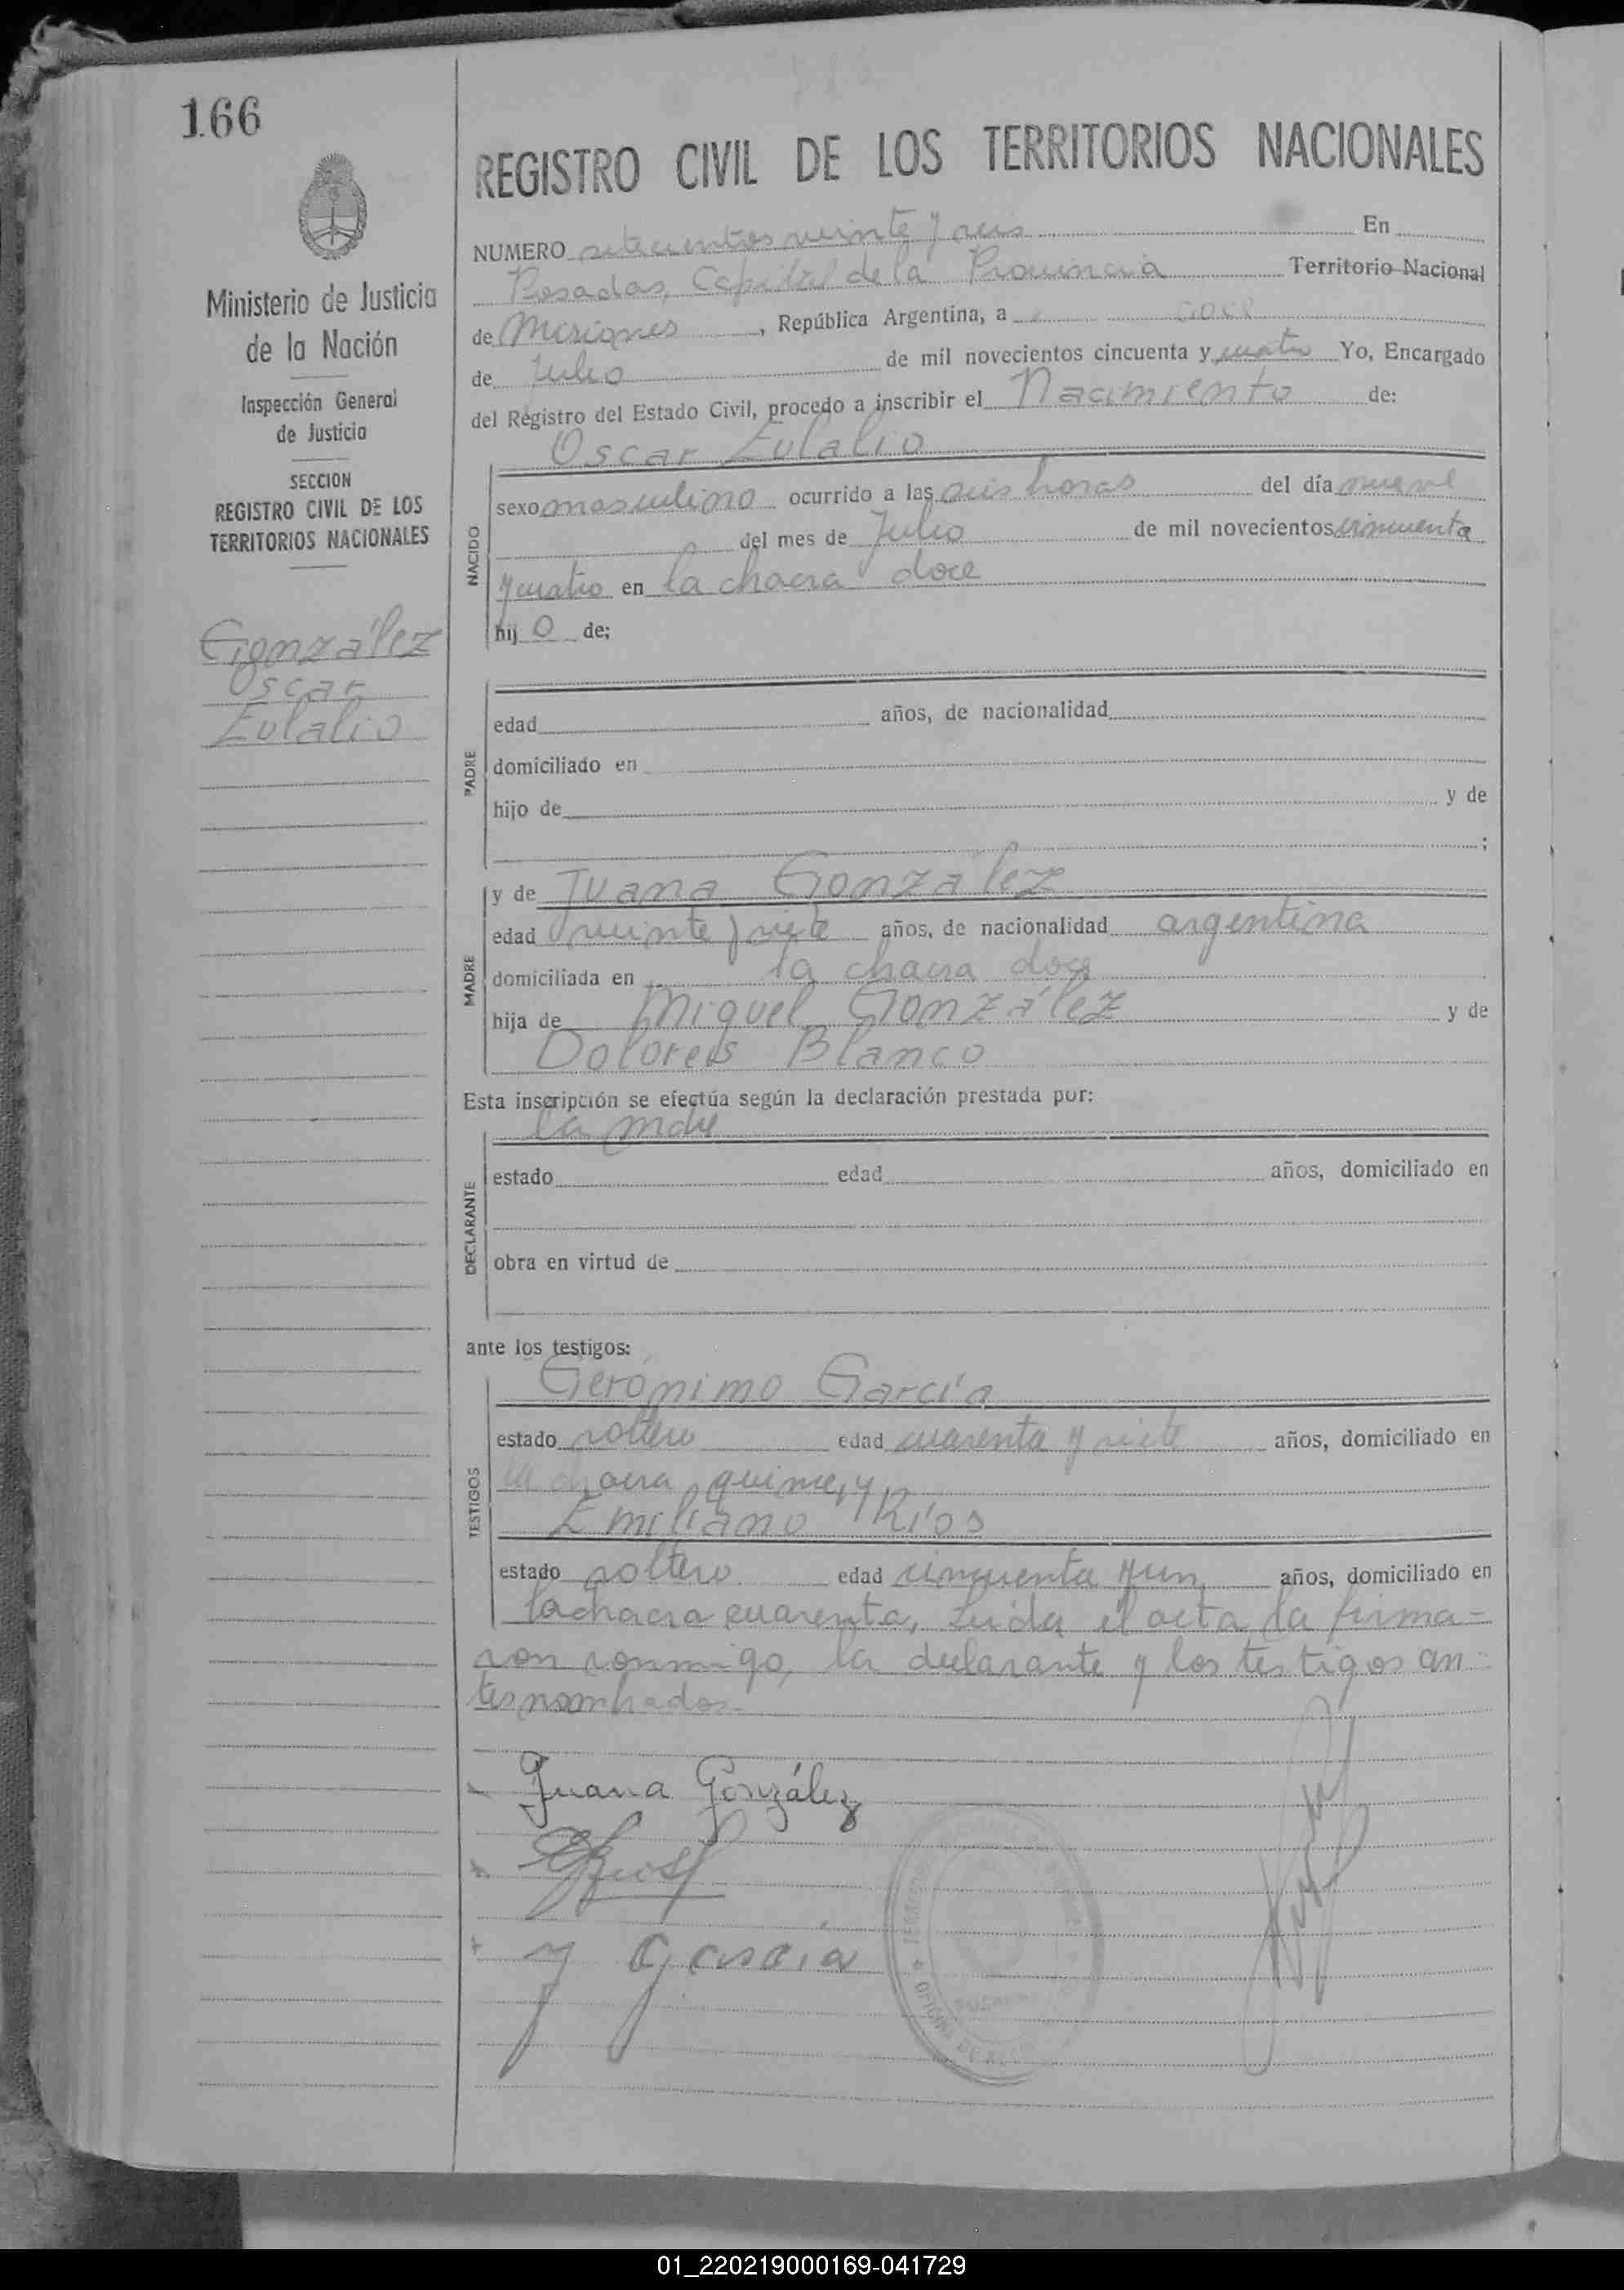 166
REGISTRO CIVIL DE LOS TERRITORIOS NACIONALES
Ministerio de Justicia
de la Nación
Inspección General
de Justicia
SECCION
REGISTRO CIVIL DE LOS
TERRITORIOS NACIONALES
González
Oscar
Eulalio
NUMERO setecientos veinte y seis En
Posadas, Capital de la Provincia Territorio Nacional
de Misiones, República Argentina, a doce
de Julio de mil novecientos cincuenta y cuatro Yo, Encargado
del Registro del Estado Civil, procedo a inscribir el Nacimiento de:
Oscar Eulalio
NACIDO
sexo masculino ocurrido a las seis horas del día nueve
del mes de Julio de mil novecientos cincuenta
y cuatro en la chacra doce
hijo de;
PADRE
edad años, de nacionalidad
domiciliado en
hijo de y de
;
MADRE
y de Juana González
edad veinte y siete años, de nacionalidad argentina
domiciliada en la chacra doce
hija de Miguel González y de
Dolores Blanco
Esta inscripción se efectúa según la declaración prestada por:
la mdre
DECLARANTE
estado edad años, domiciliado en
obra en virtud de
ante los testigos:
TESTIGOS
Gerónimo García
estado soltero edad cuarenta y siete años, domiciliado en
la chacra quince, y
Emiliano Ríos
estado soltero edad cincuenta y un años, domiciliado en
la chacra cuarenta, Leida el acta la firma-
ron conmigo, la declarante y los testigos an-
tes nombrados.-
Juana González
J García
OFICINA DE
01_220219000169-041729